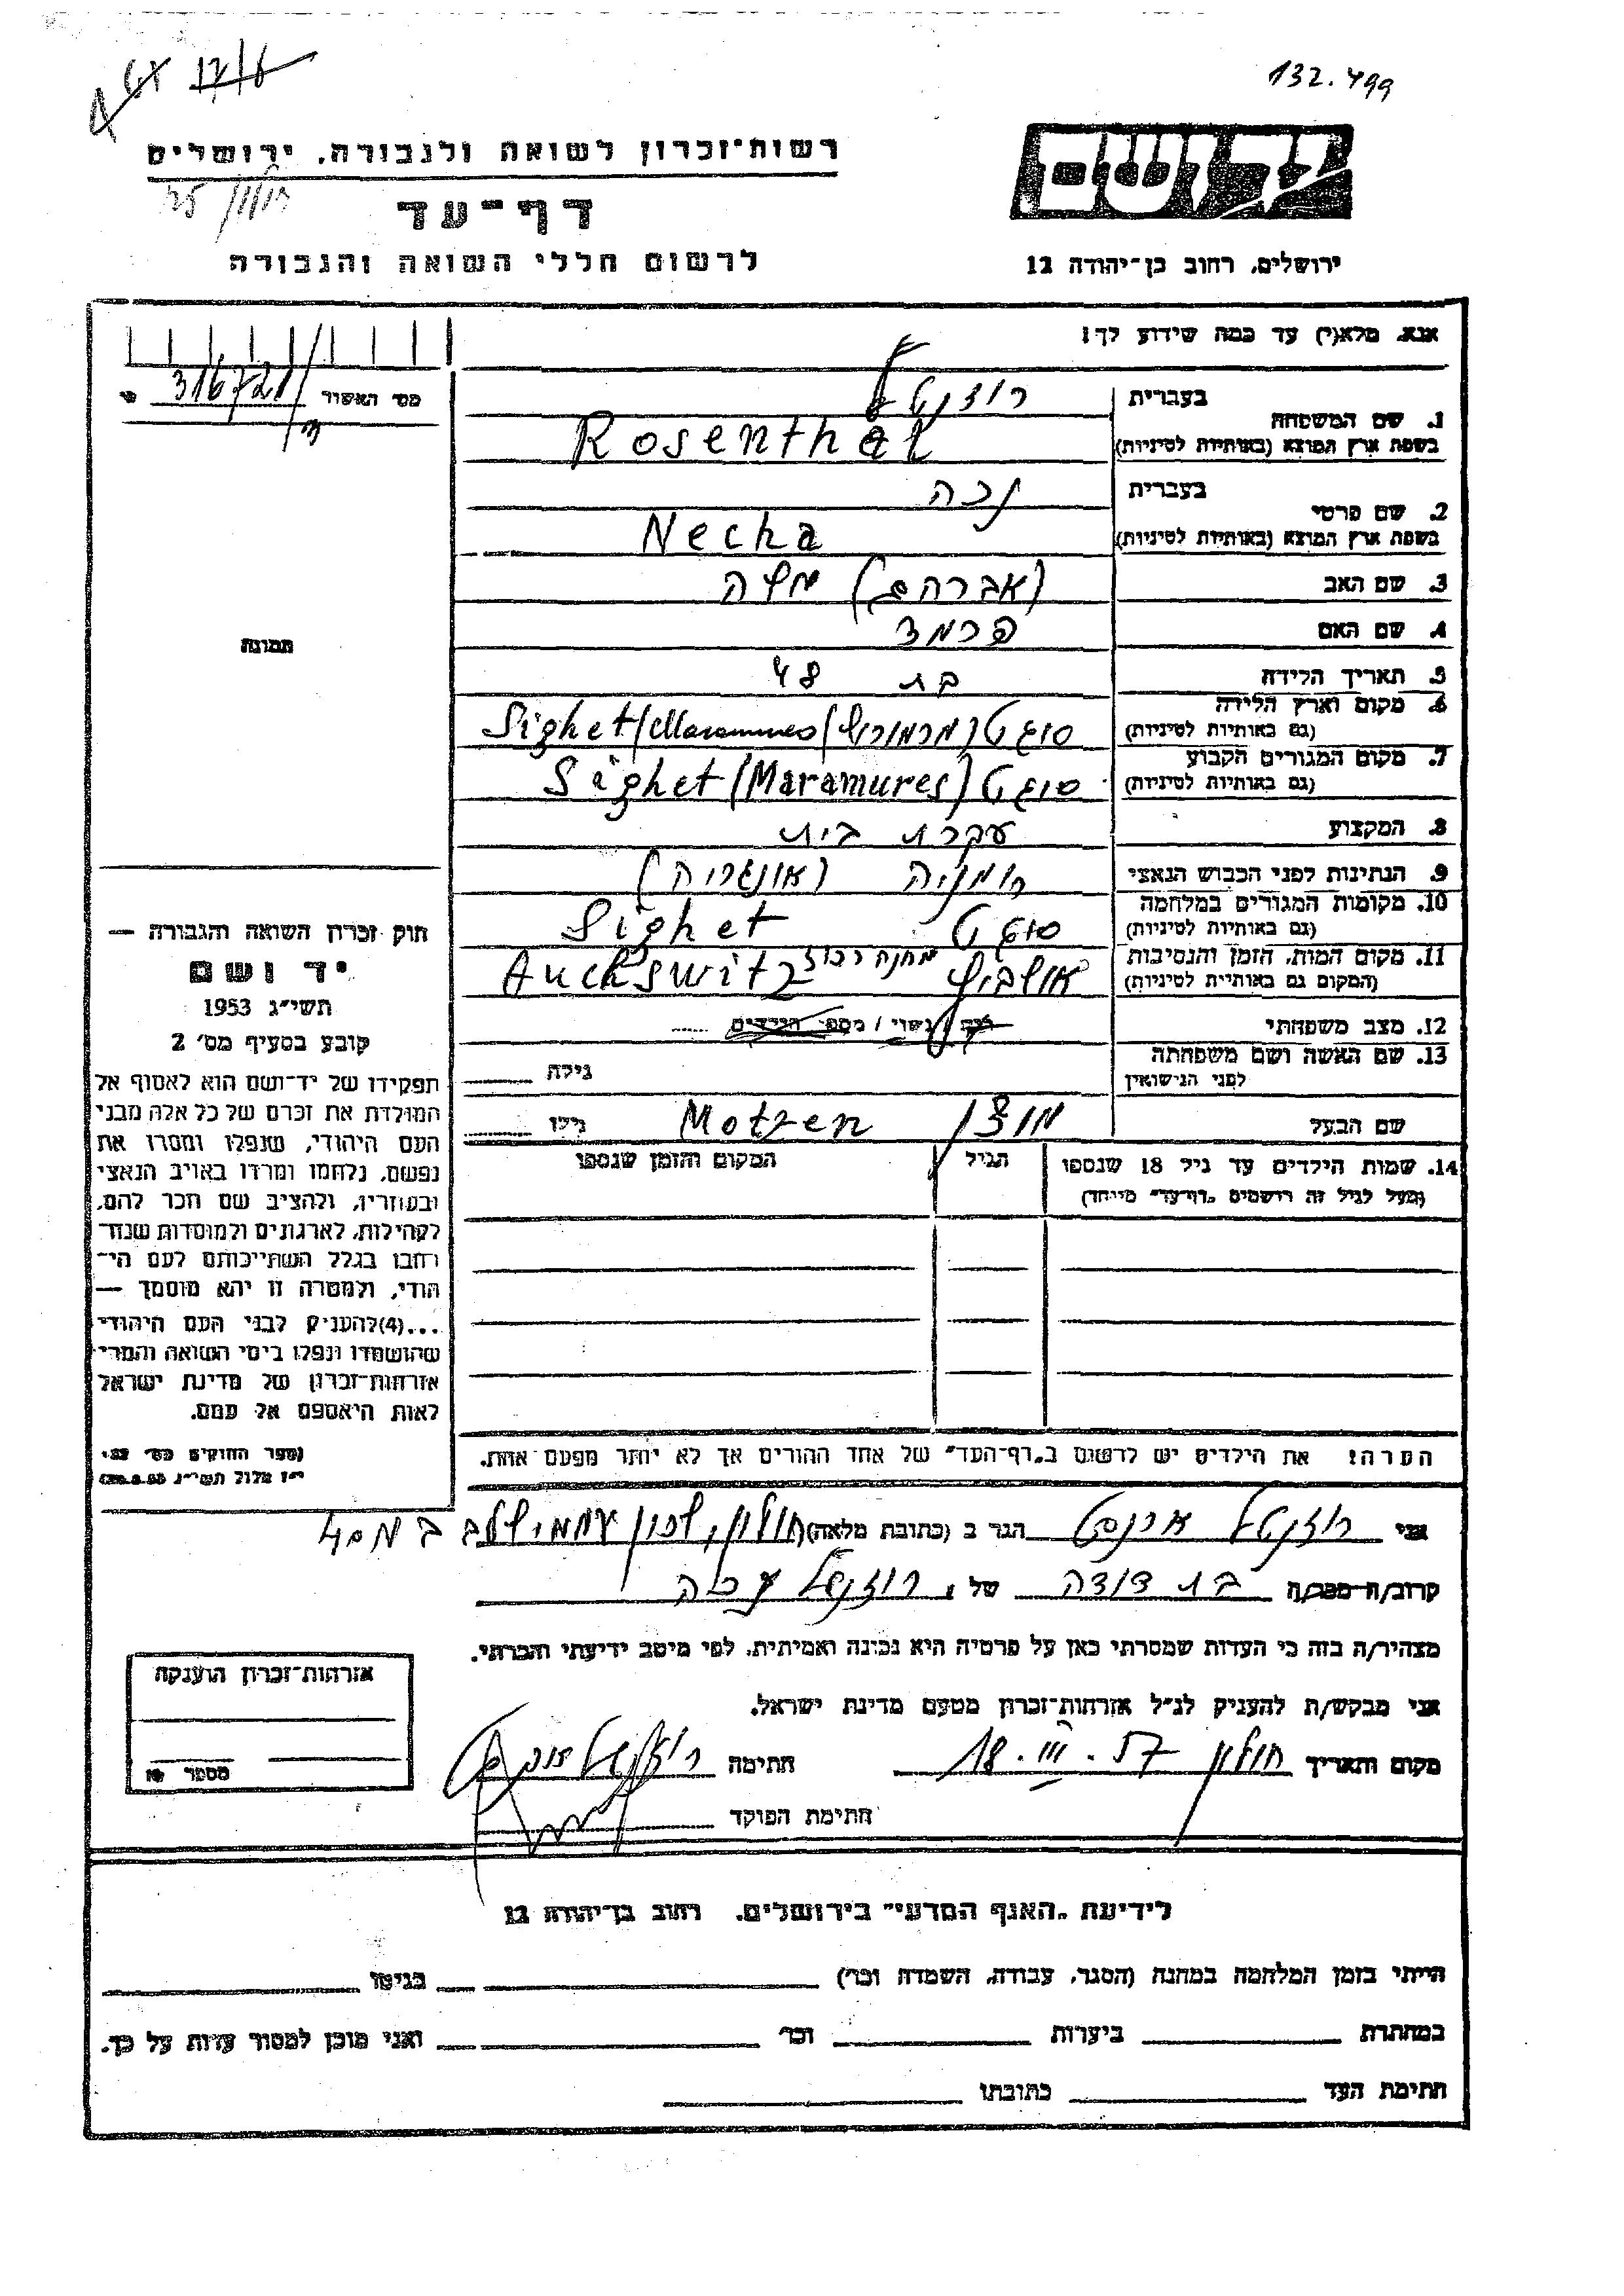 132.499
17/6
רשות־זכרון לשואה ולגבורה, ירושלים
דף־עד
לרשום חללי השואה והגבורה
יד ושם
ירושלים, רחוב בן־יהודה 12
אנא, מלא(י) עד כמה שידוע לך!
מס׳ האשור 316721
1. שם המשפחה
בעברית רוזנטל
בשפת ארץ המוצא (באותיות לטיניות) Rosenthal
2. שם פרטי
בעברית נכה
בשפת ארץ המוצא (באותיות לטיניות) Necha
3. שם האב (אברהם) משה
4. שם האם פרמד
5. תאריך הלידה בת 48
6. מקום וארץ הלידה
(גם באותיות לטיניות) סיגט (מרמורש) Sighet/Maramures
7. מקום המגורים הקבוע
(גם באותיות לטיניות) סיגט Sighet (Maramures)
8. המקצוע עקרת בית
9. הנתינות לפני הכבוש הנאצי רומניה (אונגריה)
10. מקומות המגורים במלחמה
(גם באותיות לטיניות) סיגט Sighet
11. מקום המות, הזמן והנסיבות
(המקום גם באותיות לטיניות) אושביץ מחנה רכוז Auckswitz
12. מצב משפחתי רוק/ נשוי / מספר הילדים
13. שם האשה ושם משפחתה
לפני הנישואין
גילה
שם הבעל מוצן Motzen גילו
14. שמות הילדים עד גיל 18 שנספו
(מעל לגיל זה רושמים „דף־עד״ מייחד)
הגיל
המקום והזמן שנספו
הערה! את הילדים יש לרשום ב„דף־העד״ של אחד ההורים אך לא יותר מפעם אחת.
תמונה
חוק זכרון השואה והגבורה —
יד ושם
תשי״ג 1953
קובע בסעיף מס׳ 2
תפקידו של יד־ושם הוא לאסוף אל
המולדת את זכרם של כל אלה מבני
העם היהודי, שנפלו ומסרו את
נפשם, נלחמו ומרדו באויב הנאצי
ובעוזריו, ולהציב שם וזכר להם,
לקהילות, לארגונים ולמוסדות שנח־
רבו בגלל השתייכותם לעם הי־
הודי, ולמטרה זו יהא מוסמך —
...(4)להעניק לבני העם היהודי
שהושמדו ונפלו בימי השואה והמרי
אזרחות־זכרון של מדינת ישראל
לאות היאספם אל עמם.
(ספר החוקים מס׳ 132,
י״ז אלול תשי״ג 28.8.53)
אני רוזנטל ארנסט הגר ב (כתובת מלאה) חולון, שכון עממי
קרוב/ה מכר/ה בת דודה של רוזנטל נכה
מצהיר/ה בזה כי העדות שמסרתי כאן על פרטיה היא נכונה ואמיתית, לפי מיטב ידיעתי והכרתי.
אני מבקש/ת להעניק לנ״ל אזרחות־זכרון מטעם מדינת ישראל.
מקום ותאריך חולון 18.III.57 חתימה רוזנטל ארנסט
חתימת הפוקד
אזרחות־זכרון הוענקה
מספר
לידיעת „האגף המדעי״ בירושלים, רחוב בן־יהודה 12
הייתי בזמן המלחמה במחנה (הסגר, עבודה, השמדה וכו׳) בגיטו
במחתרת ביערות וכו׳ ואני מוכן למסור עדות על כך.
חתימת העד כתובתו